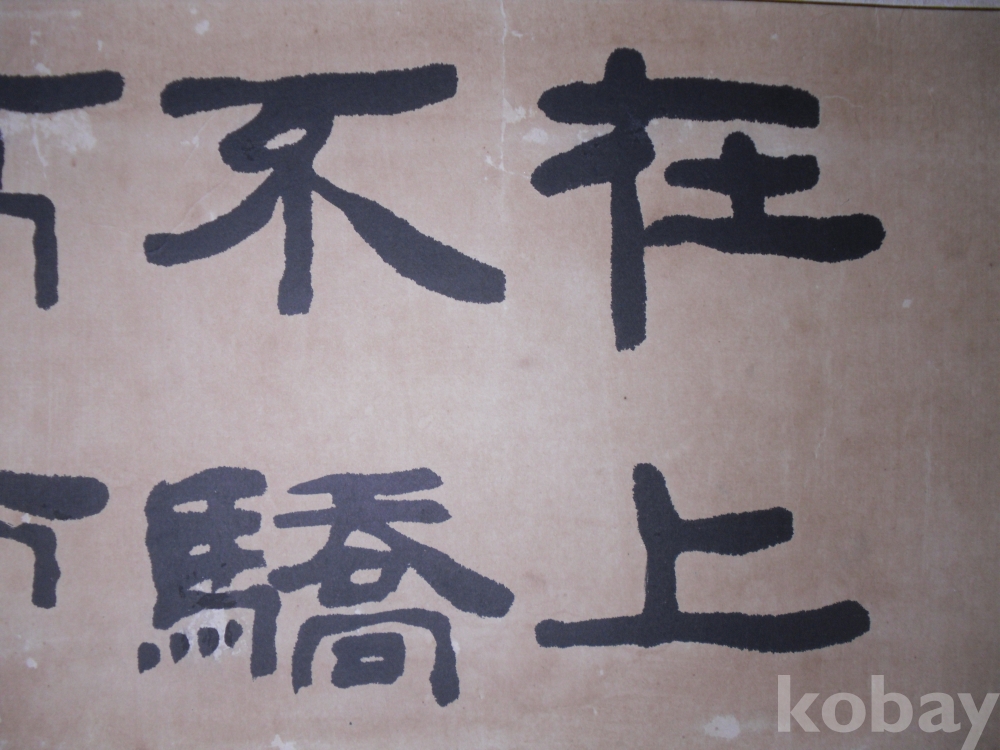 在上
不驕
kobay